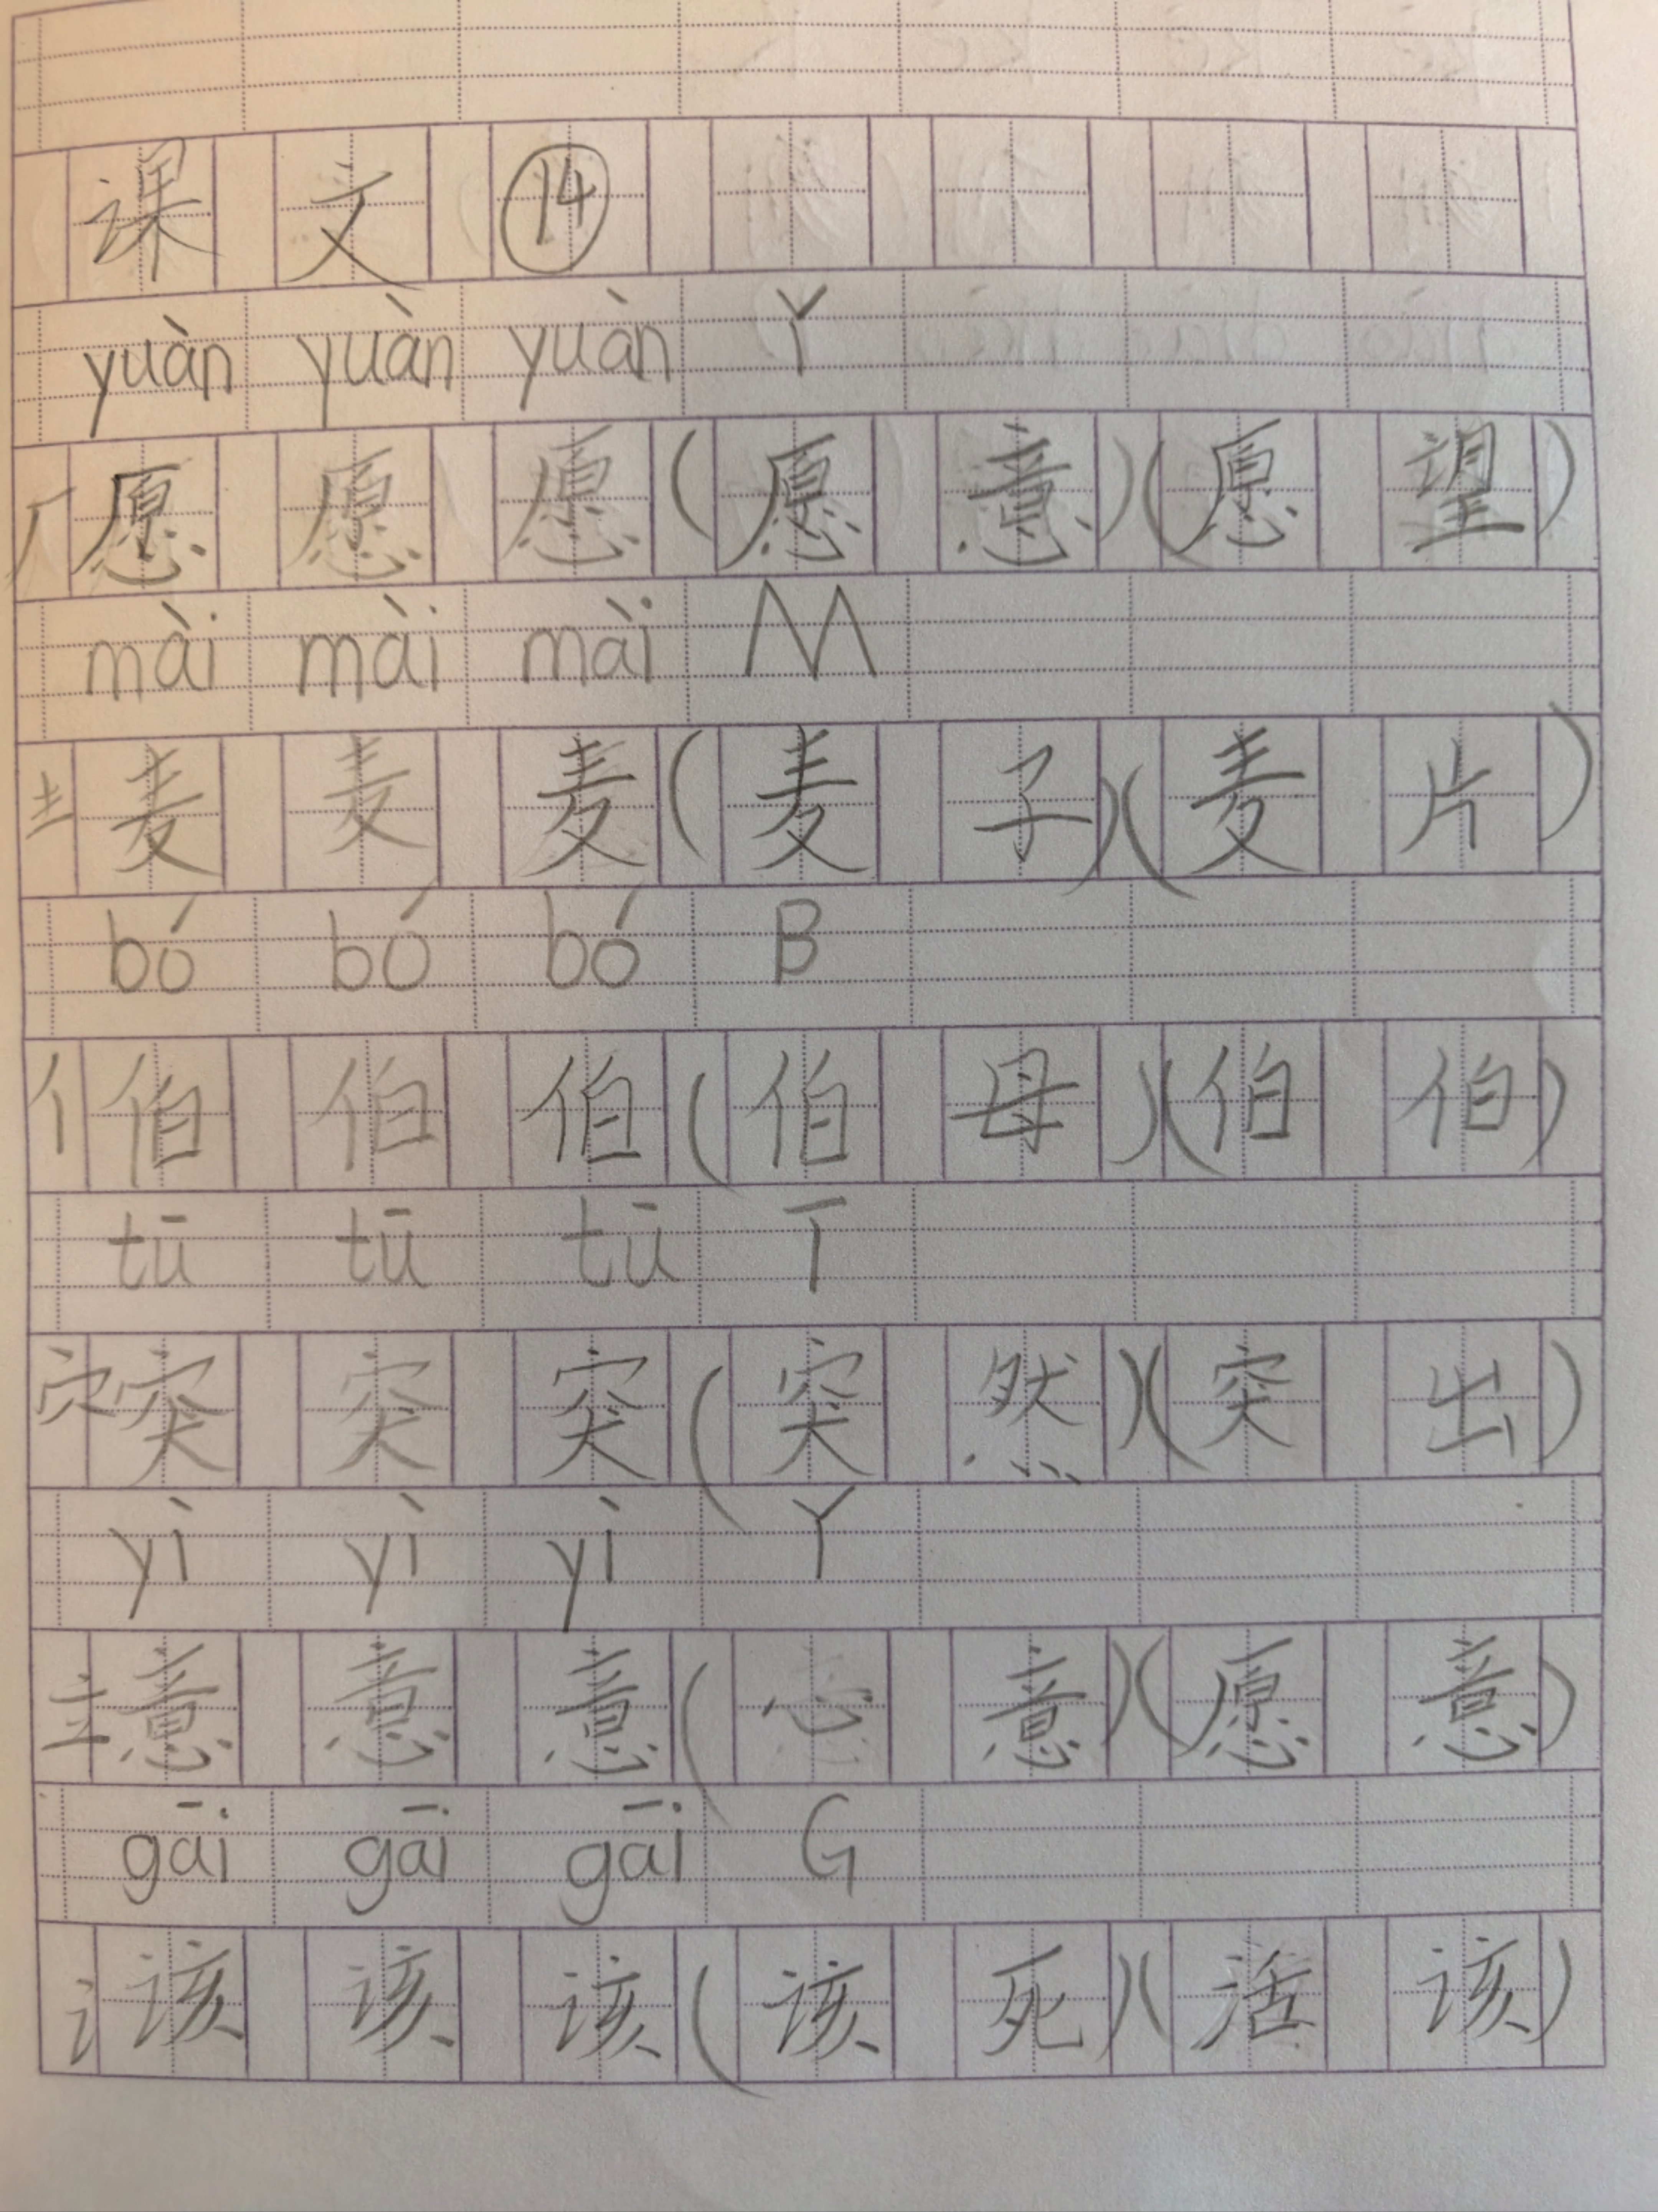 课文⑭
yuàn yuàn yuàn Y
厂愿愿愿(愿意)(愿望)
mài mài mài M
龶麦麦麦(麦子)(麦片)
bó bó bó B
亻伯伯伯(伯母)(伯伯)
tū tū tū T
穴突突突(突然)(突出)
yì yì yì Y
立意意意(心意)(愿意)
gāi gāi gāi G
讠该该该(该死)(活该)